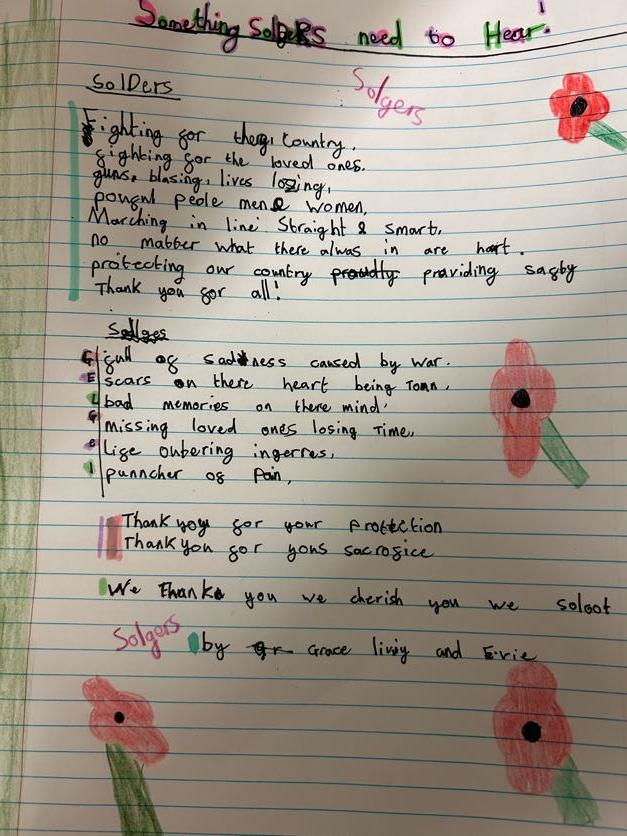 Something SolDeRS need to Hear!
Solgers
SolDers
Fighting for ther country.
fighting for the loved ones.
guns, blasing, lives losing,
powful peole men & women,
Marching in line Straight & Smart.
no matber what there alwas in are hart.
protecting our country proudly providing safty
Thank you for all!
Sollges
full of sadness caused by war.
scars on there heart being Torn,
bad memories on there mind,
missing loved ones losing Time,
Life onbering ingerres,
punncher of Pain,
Thank you for your Protection
Thank you for yous sacrofice
We thank you we cherish you we soloot
Solgers
by Grace liviy and Evie